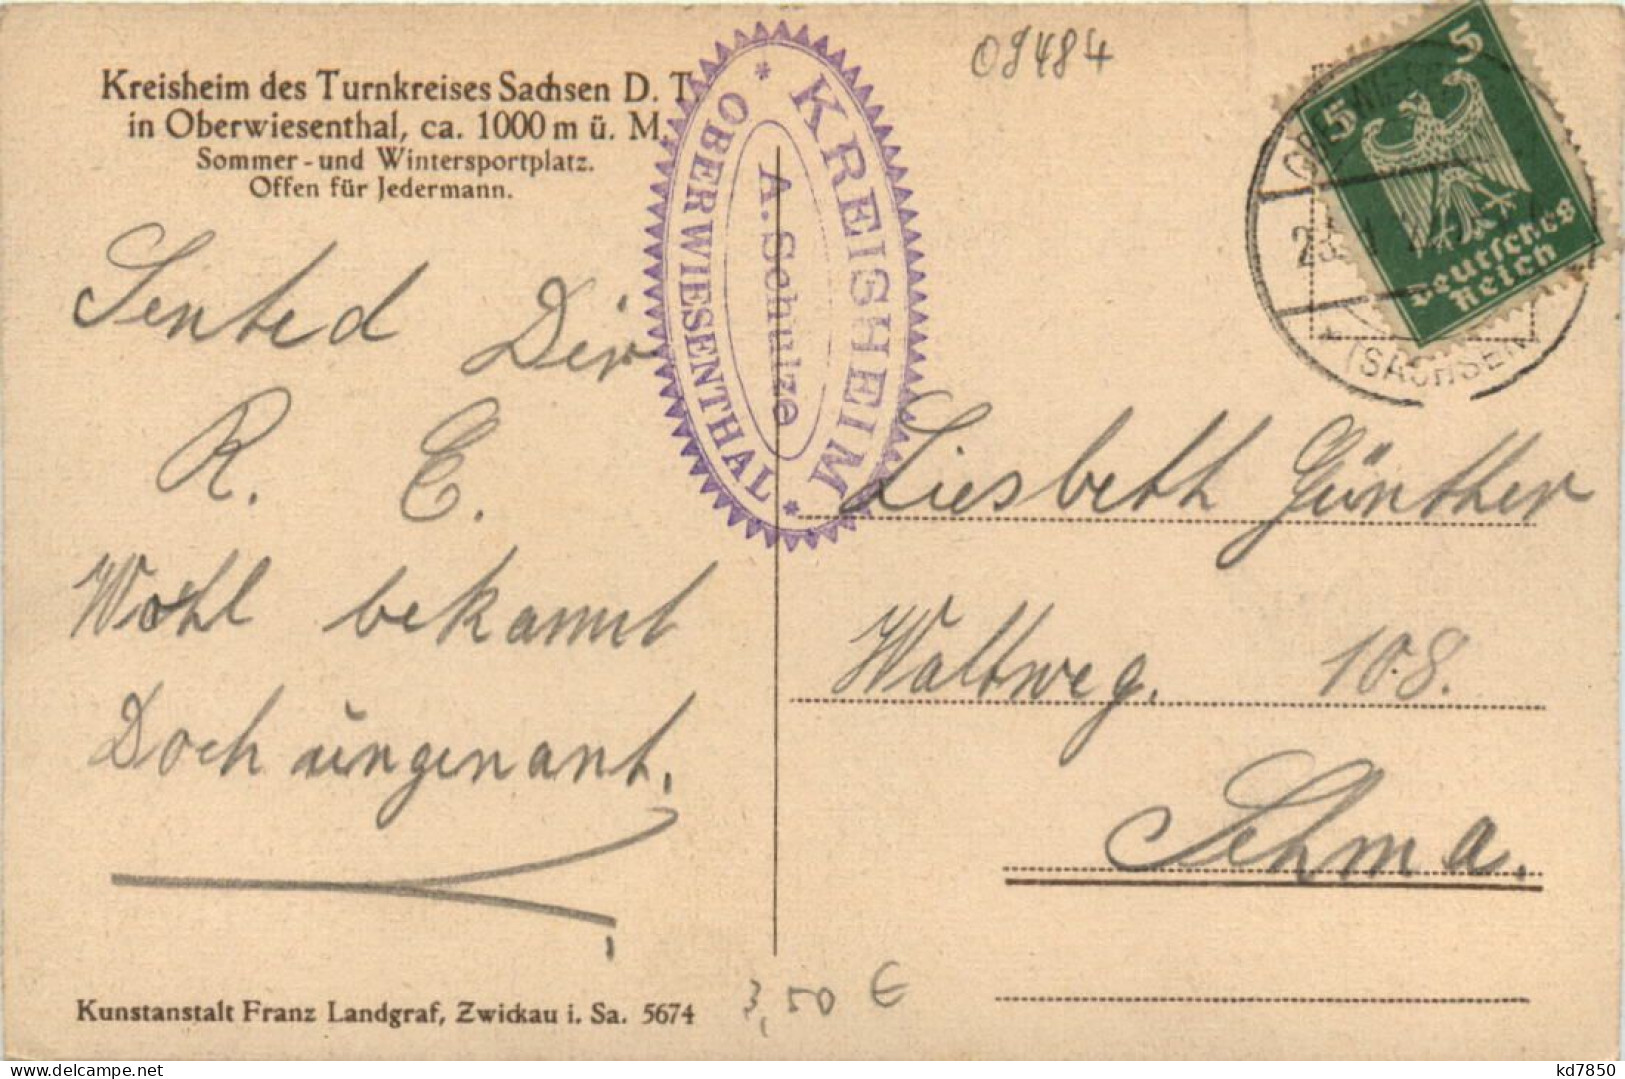 09484
Kreisheim des Turnkreises Sachsen D. T.
in Oberwiesenthal, ca. 1000 m ü. M.
Sommer- und Wintersportplatz.
Offen für Jedermann.
KREISHEIM
A. Schulze
OBERWIESENTHAL
5
5
Deutsches
Reich
(SACHSEN)
Sented Dir
R. E.
Wohl bekannt
Doch ungenant.
Liesbeth Günther
Waltweg. 108.
Sehma.
Kunstanstalt Franz Landgraf, Zwickau i. Sa. 5674
3,50 €
kd7850